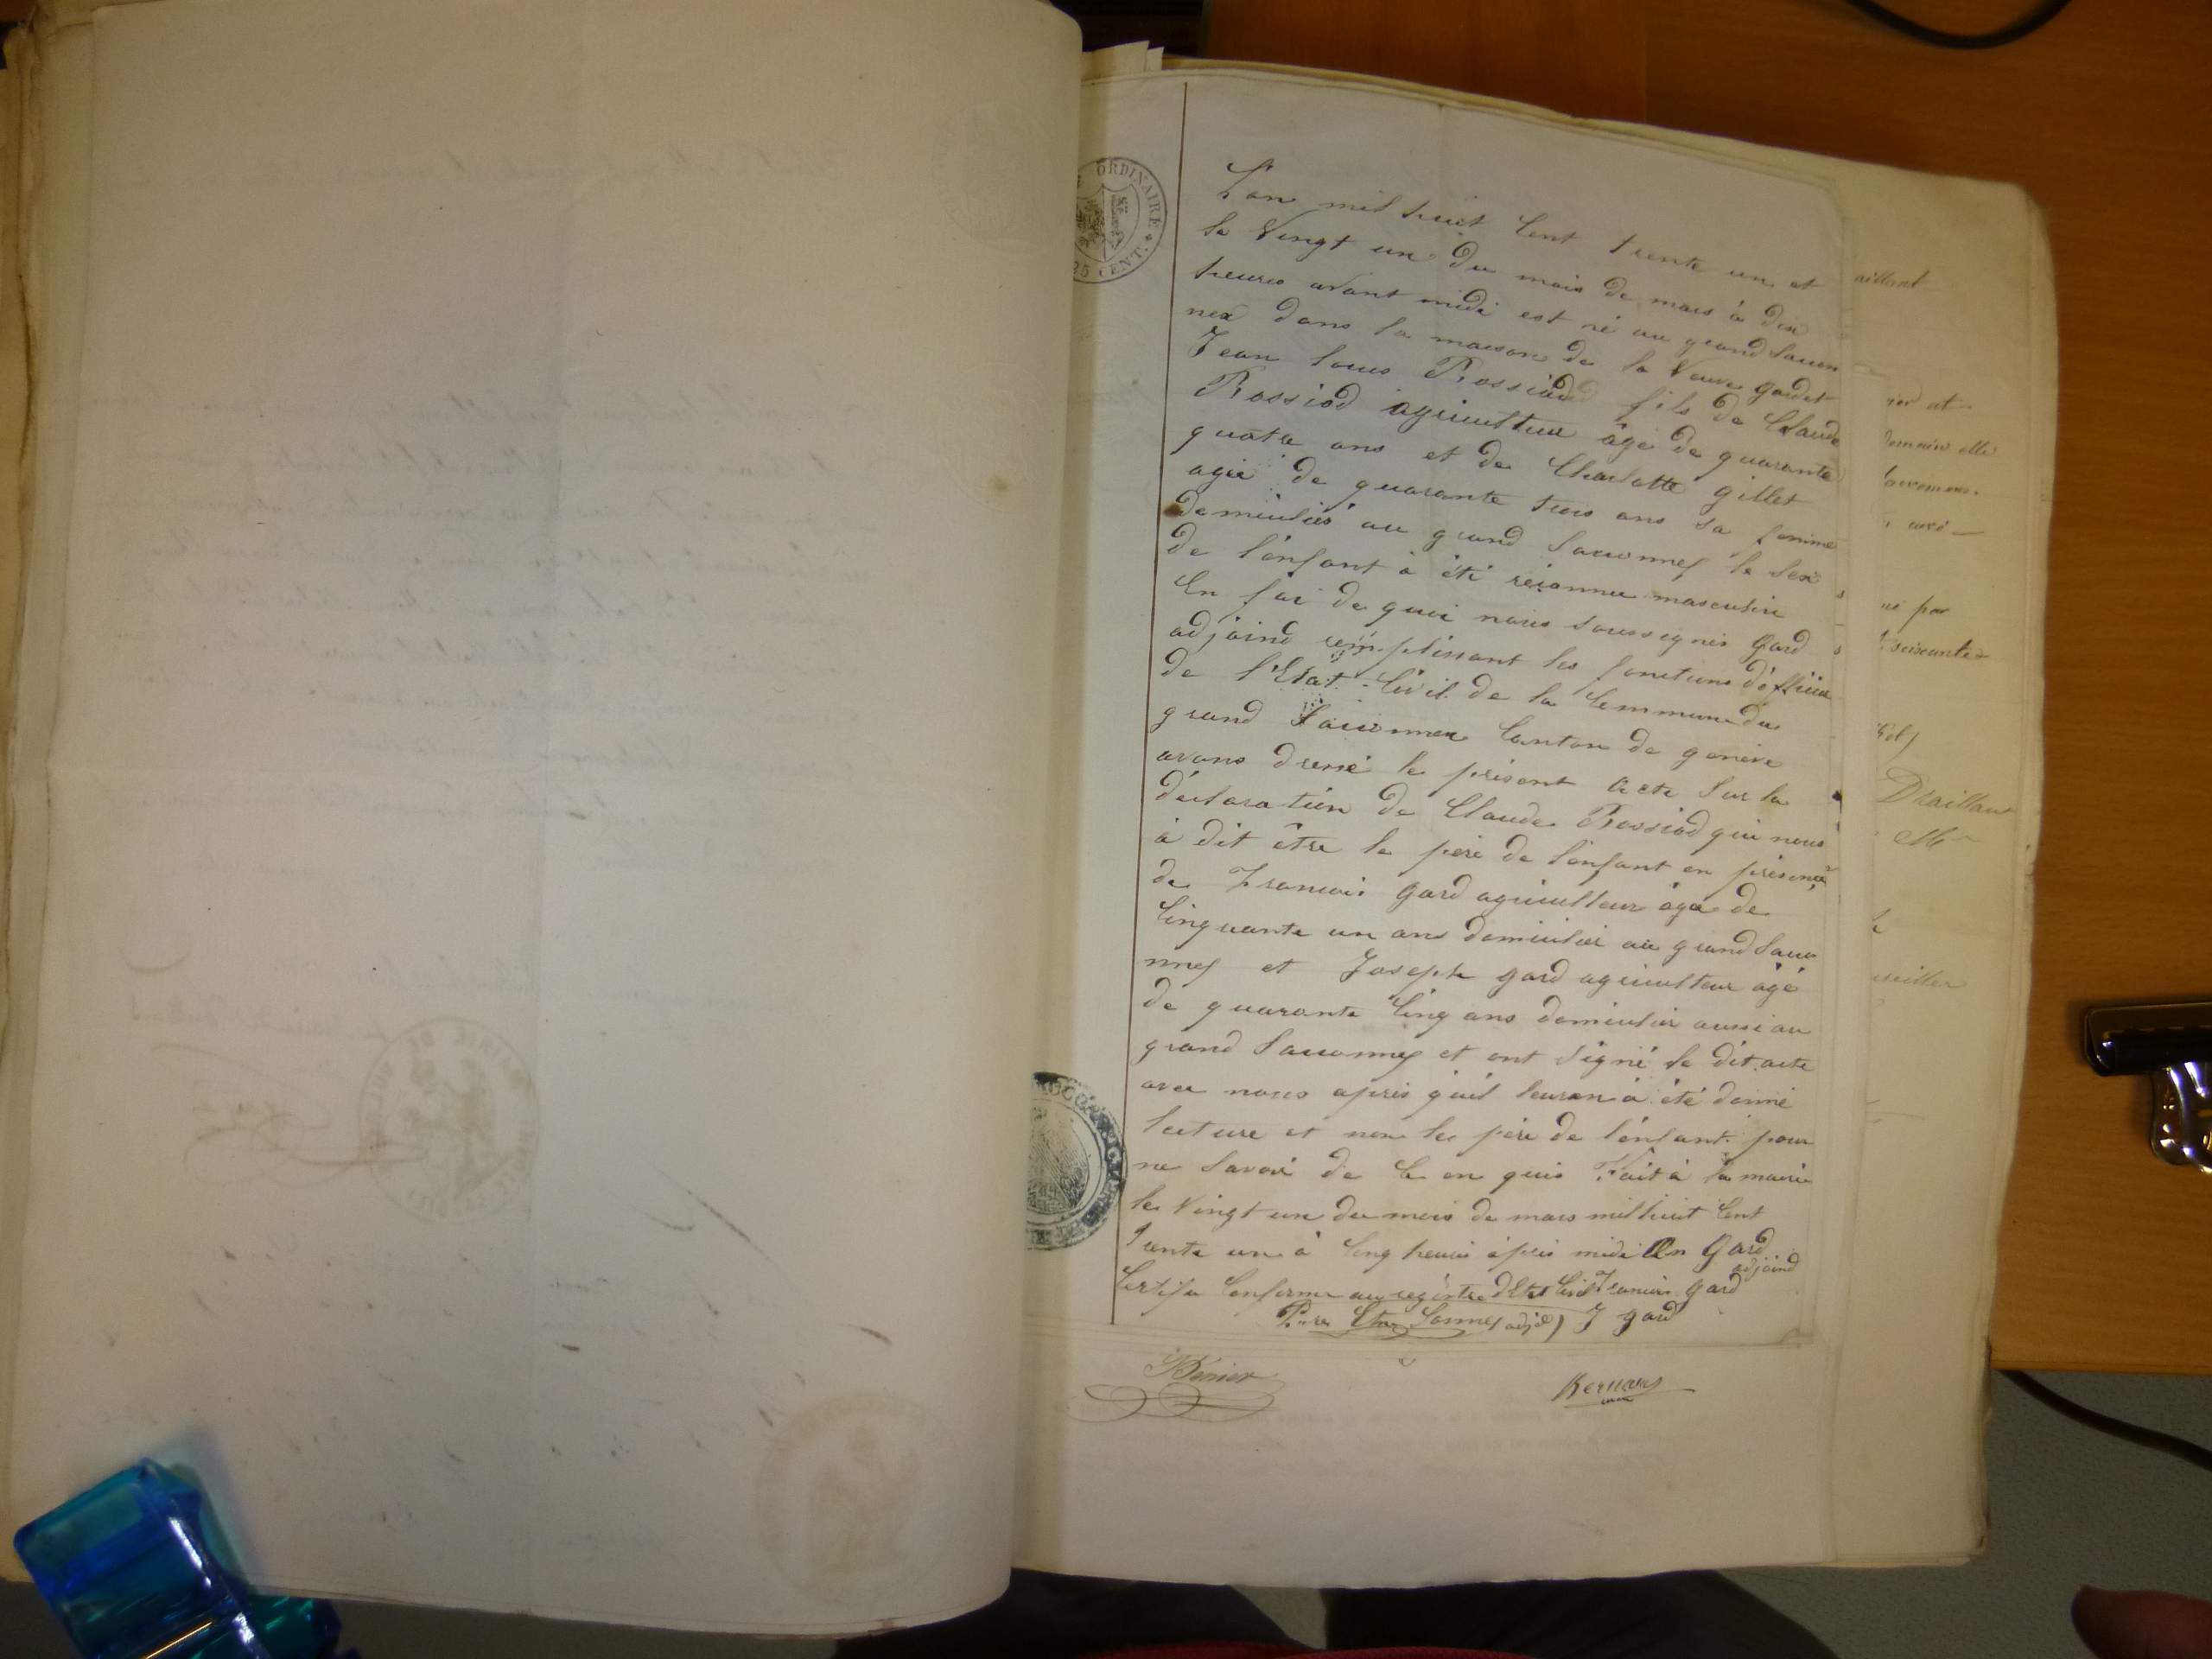 ORDINAIRE
25 CENT.
L'an mil huit Cent trente un et
le Vingt un du mois de mars à dix
heures avant midi est né au grand Sacon
nex dans la maison de la Veuve gardet
Jean Louis Rossiod fils de Claude
Rossiod agriculteur âgé de quarante
quatre ans et de Charlotte gillet
agée de quarante trois ans sa femme
domiciliés au grand Saconnex le sex
de l'enfant à été réconnu masculin
En foi de quoi nous soussignés gard
adjoind remplissant les fonctions d'officier
de l'Etat-Civil de la Commune du
grand Saconnex Canton de genève
avons dressé le présent acte Sur la
déclaration de Claude Rossiod qui nous
à dit être le père de l'enfant en présence
de francois gard agriculteur âgé de
Cinquante un ans domicilié au grand Saco
nnex et Joseph gard agriculteur âgé
de quarante Cinq ans domicilié aussi au
grand Saconnex et ont Signé le dit acte
avec nous après quil leur en à été donné
lecture et non le père de l'enfant pour
ne Savoir de Ce en quis Fait à la mairie
le Vingt un du mois de mars mil huit Cent
trente un à Cinq heures après midi An Gard
adjoind
Certifié Conforme au registre d'Etat Civil francois gard
J gard
aillant
ier et
elle
par
soixante
Draillant